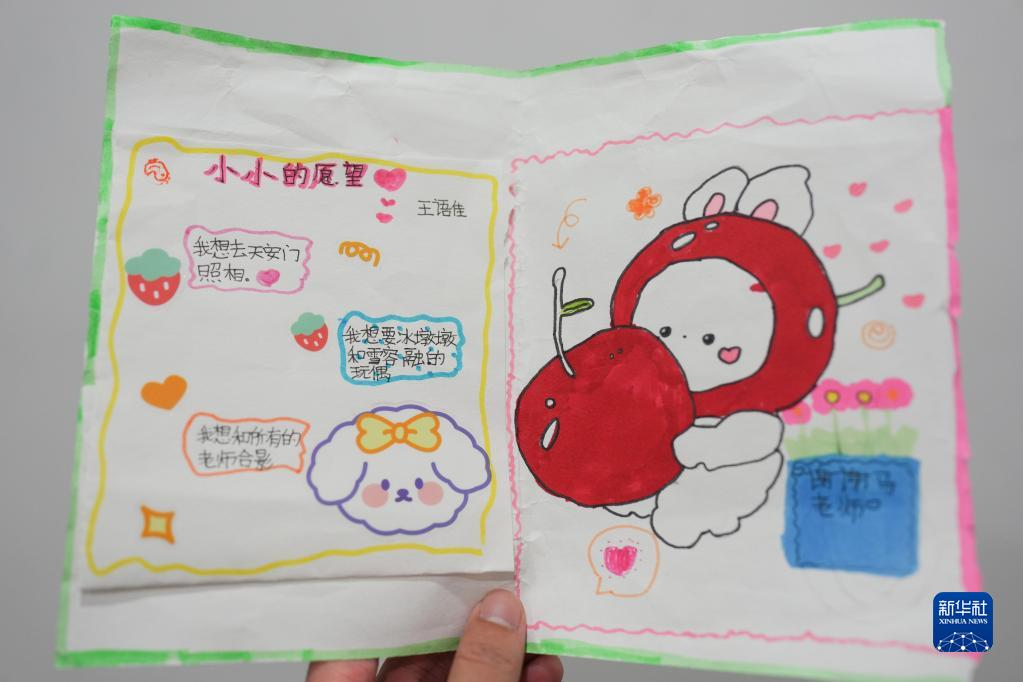 小小的愿望
王语佳
我想去天安门
照相。
我想要冰墩墩
和雪容融的
玩偶
我想和所有的
老师合影
谢谢马
老师
新华社
XINHUA NEWS